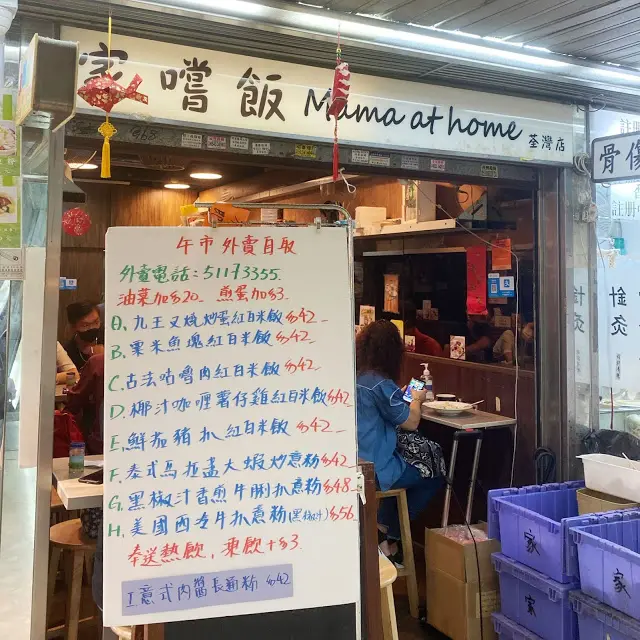 家嚐飯 Mama at home 荃灣店
骨傷
針灸
午市外賣自取
外賣電話：51173355.
油菜加$20. 煎蛋加$3.
A. 九王叉燒炒蛋紅白米飯 $42
B. 粟米魚塊紅白米飯 $42
C. 古法咕嚕肉紅白米飯 $42
D. 椰汁咖喱薯仔雞紅白米飯 $42
E. 鮮茄豬扒紅白米飯 $42
F. 泰式馬拉盞大蝦炒意粉 $42
G. 黑椒汁香煎牛脷扒意粉 $48
H. 美國西冷牛扒意粉(黑椒汁) $56
奉送熱飲，凍飲+$3.
I. 意式肉醬長通粉 $42
家
家
家